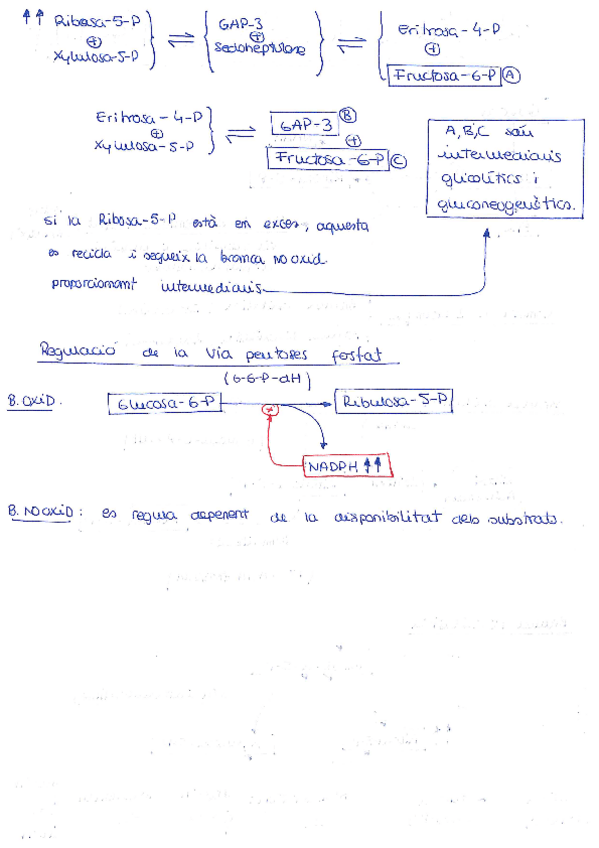 ↑↑ Ribosa-5-P + Xylulosa-5-P ⇌ GAP-3 + Sedoheptulosa ⇌ Eritrosa-4-P + Fructosa-6-P (A)
Eritrosa-4-P + Xylulosa-5-P ⇌ GAP-3 (B) + Fructosa-6-P (C)
A, B, C són
intermediaris
glicolítics i
gluconeogenètics.
si la Ribosa-5-P està en excés, aquesta
es recicla i segueix la branca no oxid.
proporcionant intermediaris
Regulació de la via pentoses fosfat
(G-6-P-dH)
B. OXID. Glucosa-6-P → Ribulosa-5-P
NADPH ↑↑
B. NO OXID: es regula depenent de la disponibilitat dels substrats.